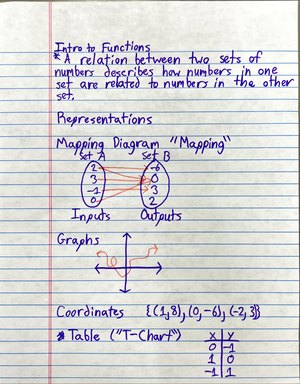 Intro to Functions
* A relation between two sets of
numbers describes how numbers in one
set are related to numbers in the other
set.
Representations
Mapping Diagram "Mapping"
Set A Set B
2 -6
3 0
-1 3
0 2
Inputs Outputs
Graphs
Coordinates {(1,8), (0,-6), (-2,3)}
* Table ("T-Chart") X Y
0 -1
1 0
-1 1